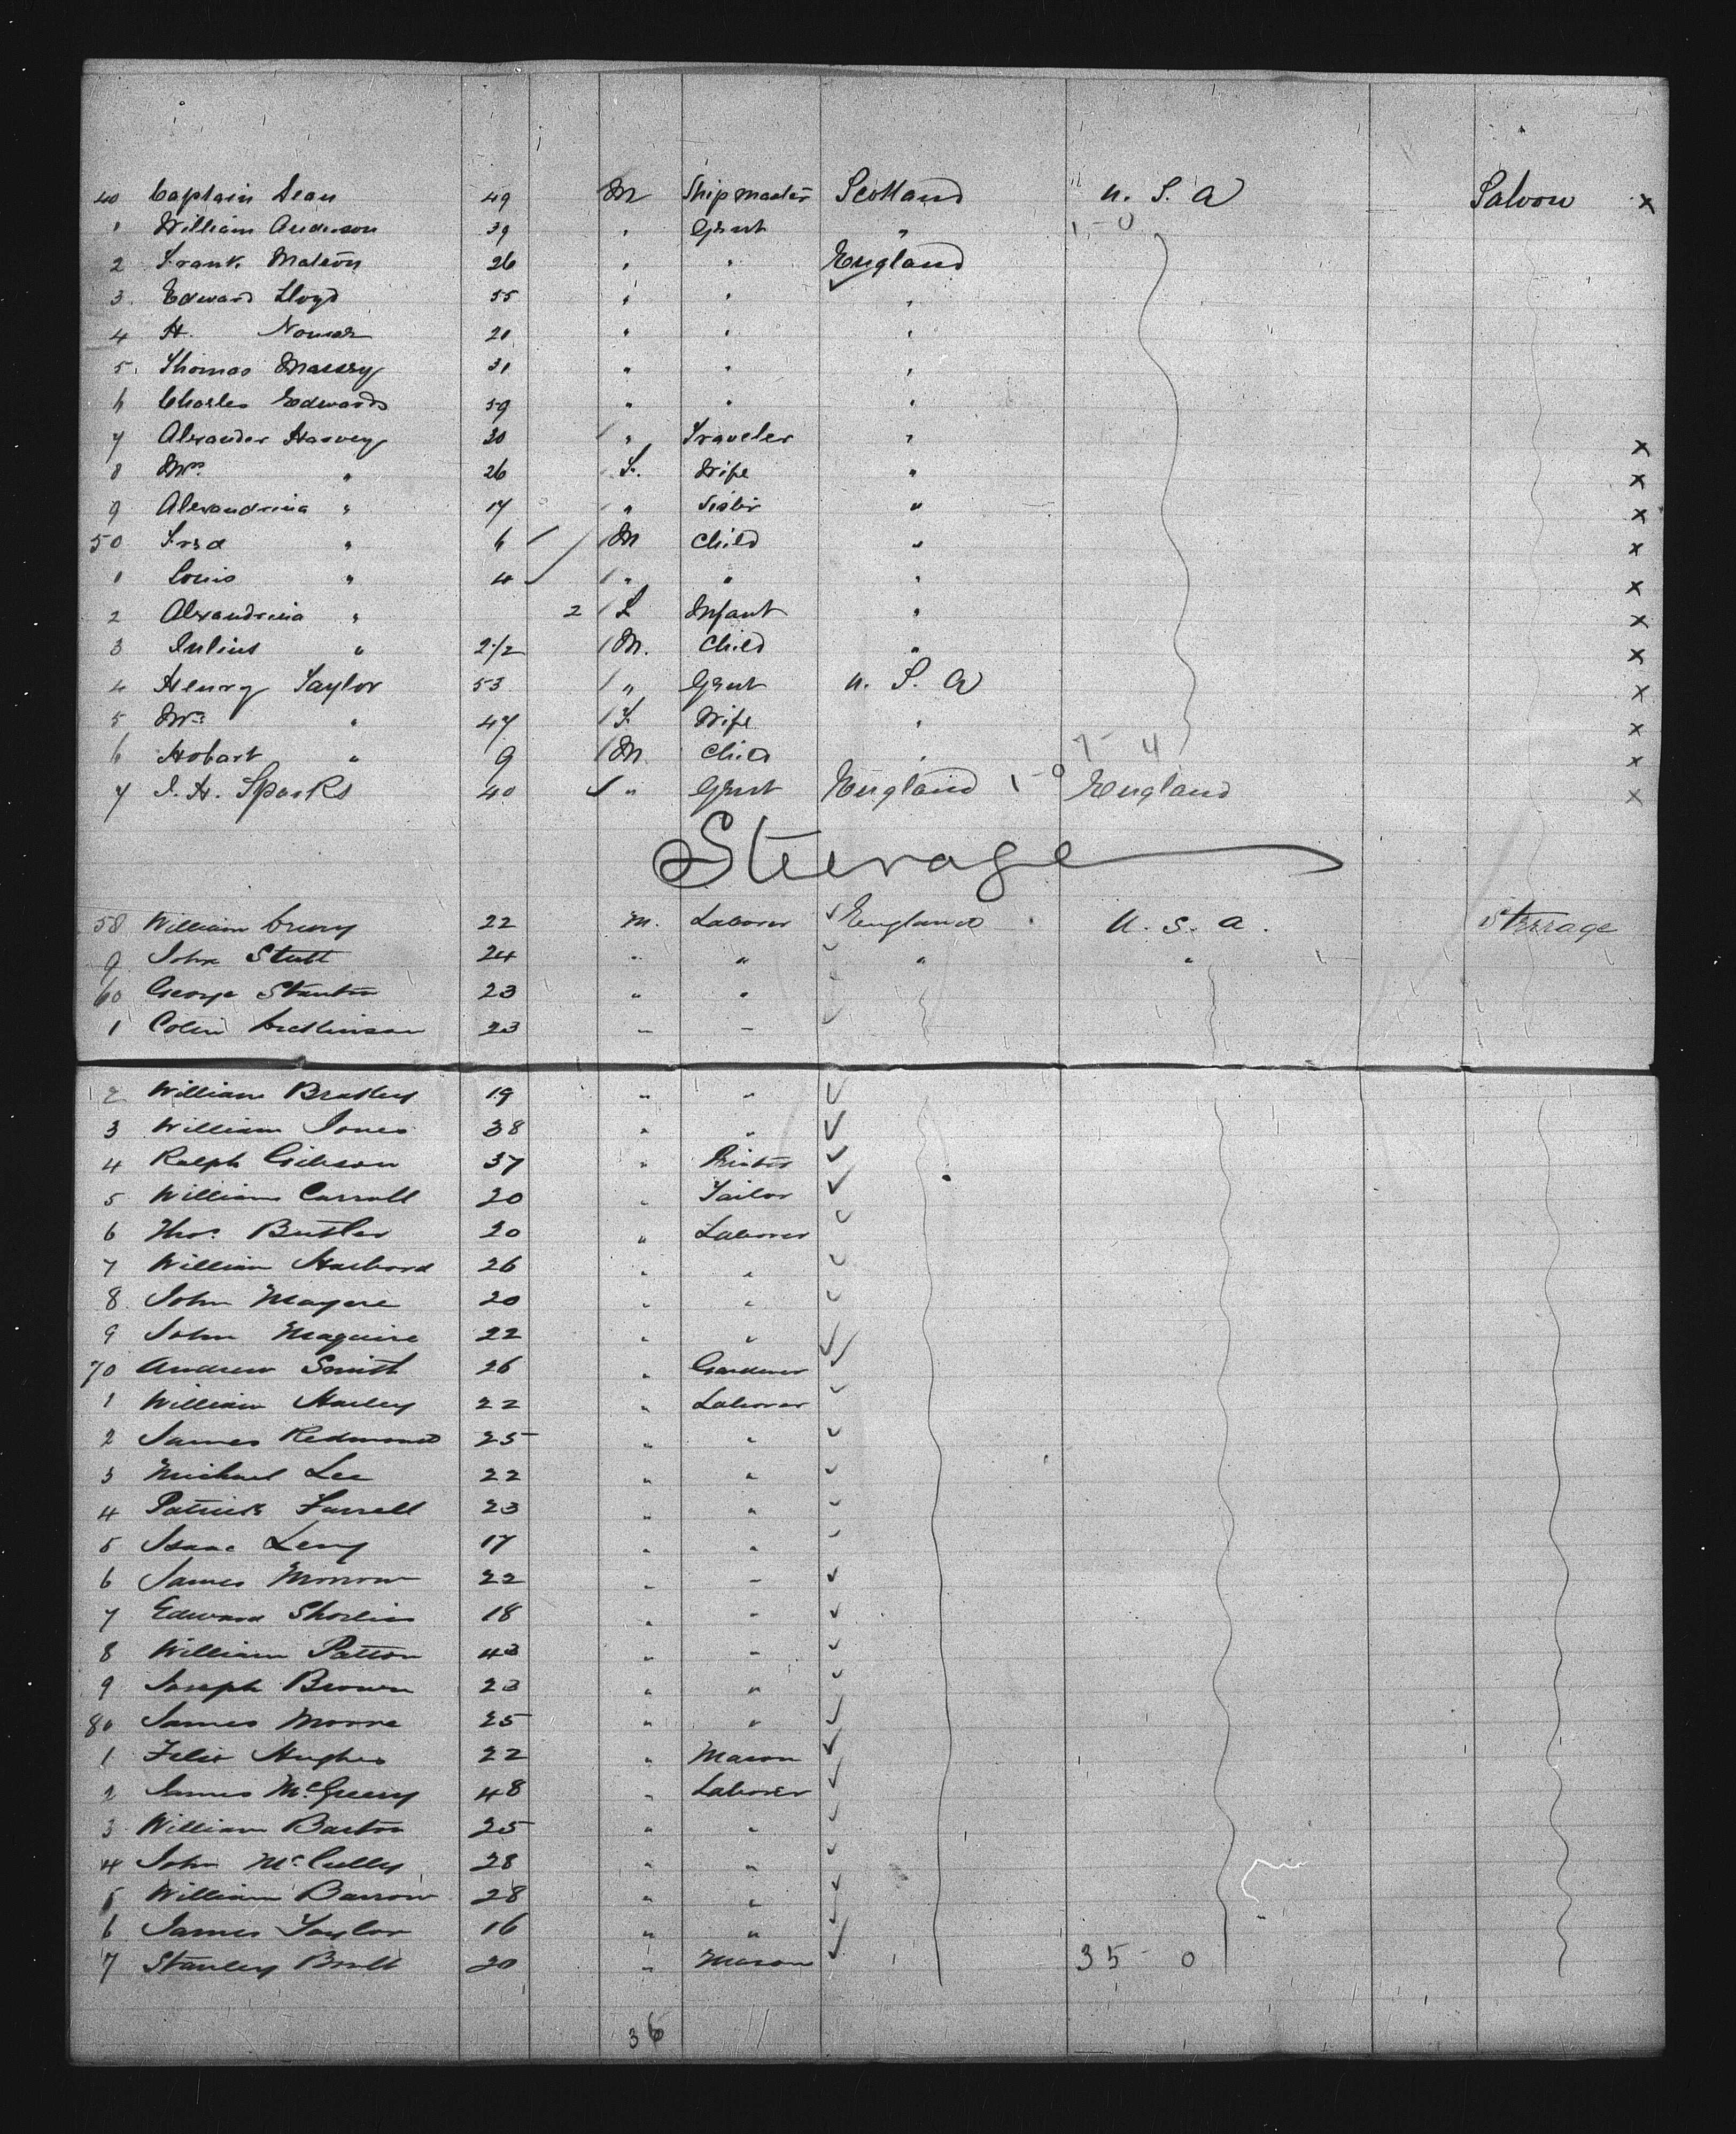 40 Captain Dean 49 M Shipmaster Scotland U. S. A Saloon x
1 William Anderson 39 " Gent " 1 - 0
2 Frank Matson 26 " " England
3. Edward Lloyd 55 " " "
4 H. 20 " " "
5. Thomas Massey 31 " " "
6 Charles Edwards 59 " " "
7 Alexander Harvey 30 " Traveler " x
8 Mrs. " 26 F. Wife " x
9 Alexandrina " 17 " Sister " x
50 Fred " 6 M Child " x
1 Louis " 4 " " " x
2 Alexandrina " 2 F Infant " x
3 Julius " 2 1/2 M. Child " x
4 Henry Taylor 53 " Gent U. S. A x
5 Mrs " 47 F. Wife " x
6 Hobart " 9 M. Child " 7 - 4 x
7 J. H. Sparks 40 " Gent England 1 - 0 England x
Steerage
58 William 22 M. Laborer England U. S. A. Steerage
9 John Stutt 24 " " " "
60 George Stanton 23 " "
1 Colin 23 " "
2 William Bradley 19 " "
3 William Jones 38 " "
4 Ralph Gibson 37 "
5 William Carroll 20 " Tailor
6 Thos. Butler 20 " Laborer
7 William Harbord 26 " "
8. John Magure 20 " "
9 John Maguire 22 " "
70 Andrew Smith 26 " Gardener
1 William Harley 22 " Laborer
2 James Redmond 25 " "
3 Michael Lee 22 " "
4 Patrick Farrell 23 " "
5 Isaac Levy 17 " "
6 James Morrow 22 " "
7 Edward 18 " "
8 William Patton 43 " "
9 Joseph Brown 23 " "
80 James Moore 25 " "
1 Felix Hughes 22 " Mason
2 James McGreevy 48 " Laborer
3 William Barton 25 " "
4 John McCully 28 " "
5 William Barrow 28 " "
6 James Taylor 16 " "
7 Stanley 20 " Mason 35 0
36 11